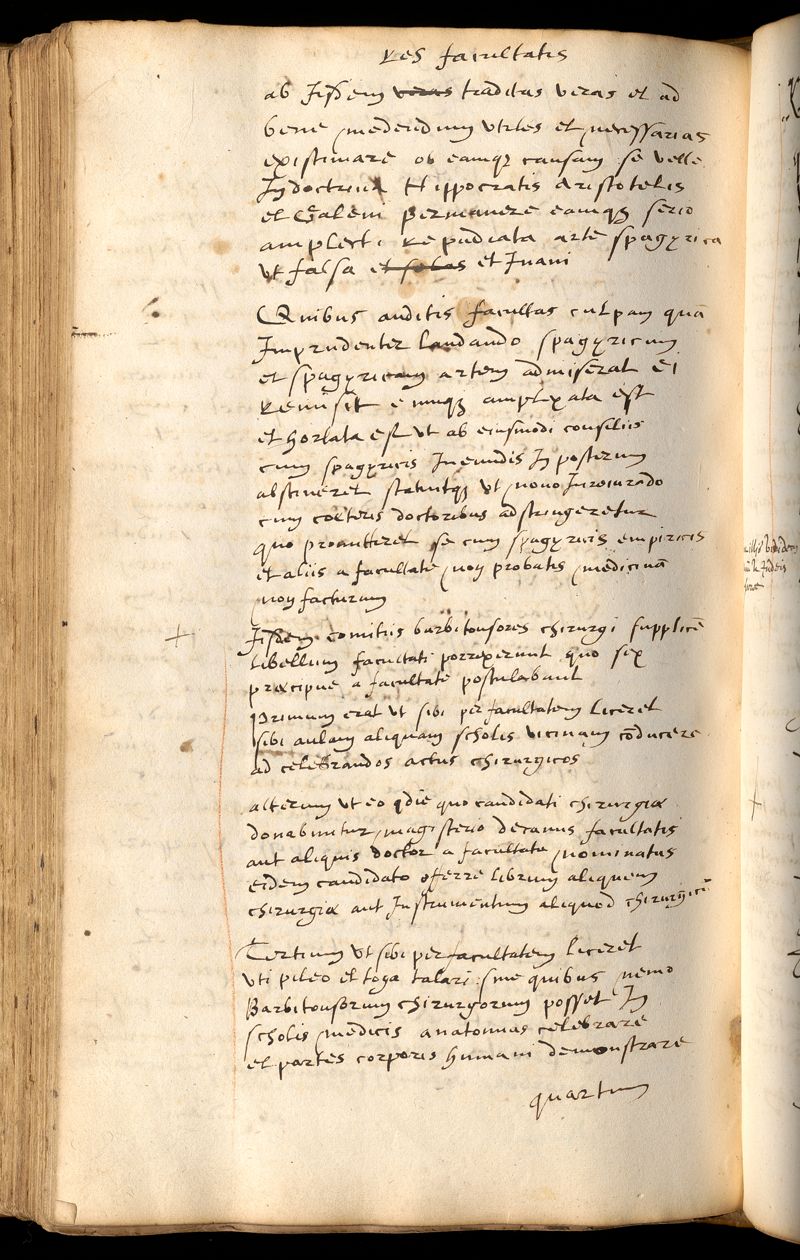 Res facultatis
ab Iisdem veras traditas veras et ad
bene medendum utiles et necessarias
existimare ob eamq; causam se velle
In doctrina Hippocratis Aristotelis
et Galeni permanere eamq; serio
amplecti repudiata arte spagyrica
ut falsa et et Inani
Quibus auditis facultas culpam quā
Imprudenter laudando spagyricum
et spagyricam artem admiserat ei
remisit eumq; amplexata est
et hortata est ut ab eiusmodi consiliis
cum spagyricis Ineundis In posterum
abstineret statuitq; ut novo Iureiurando
cum coeteris doctoribus adstringeretur
quo promitteret se cum spagyricis empiricis
et aliis a facultate non probatis medicinā
non facturum
Iisdem comitiis barbitonsores chirurgi supplicē
libellum facultati porrexerunt quo sex
præcipue a facultate postulabant
Primum erat ut sibi per facultatem liceret
sibi aulam aliquam scholis vicinam cōducere
ad celebrandos actus chirurgicos
alterum ut eo die quo candidati chirurgiæ
donabuntur magisterio decanus facultatis
aut aliquis doctor a facultate nominatus
eidem candidato offerre librum aliquem
chirurgiæ aut Instrumentum aliquod chirurgicū
Tertium ut sibi per facultatem liceret
uti pileo et toga talari sine quibus nemo
Barbitonsorum chirurgorum posset In
scholis medicis anatomias celebrare
et partes corporis humani demonstrare
quartum